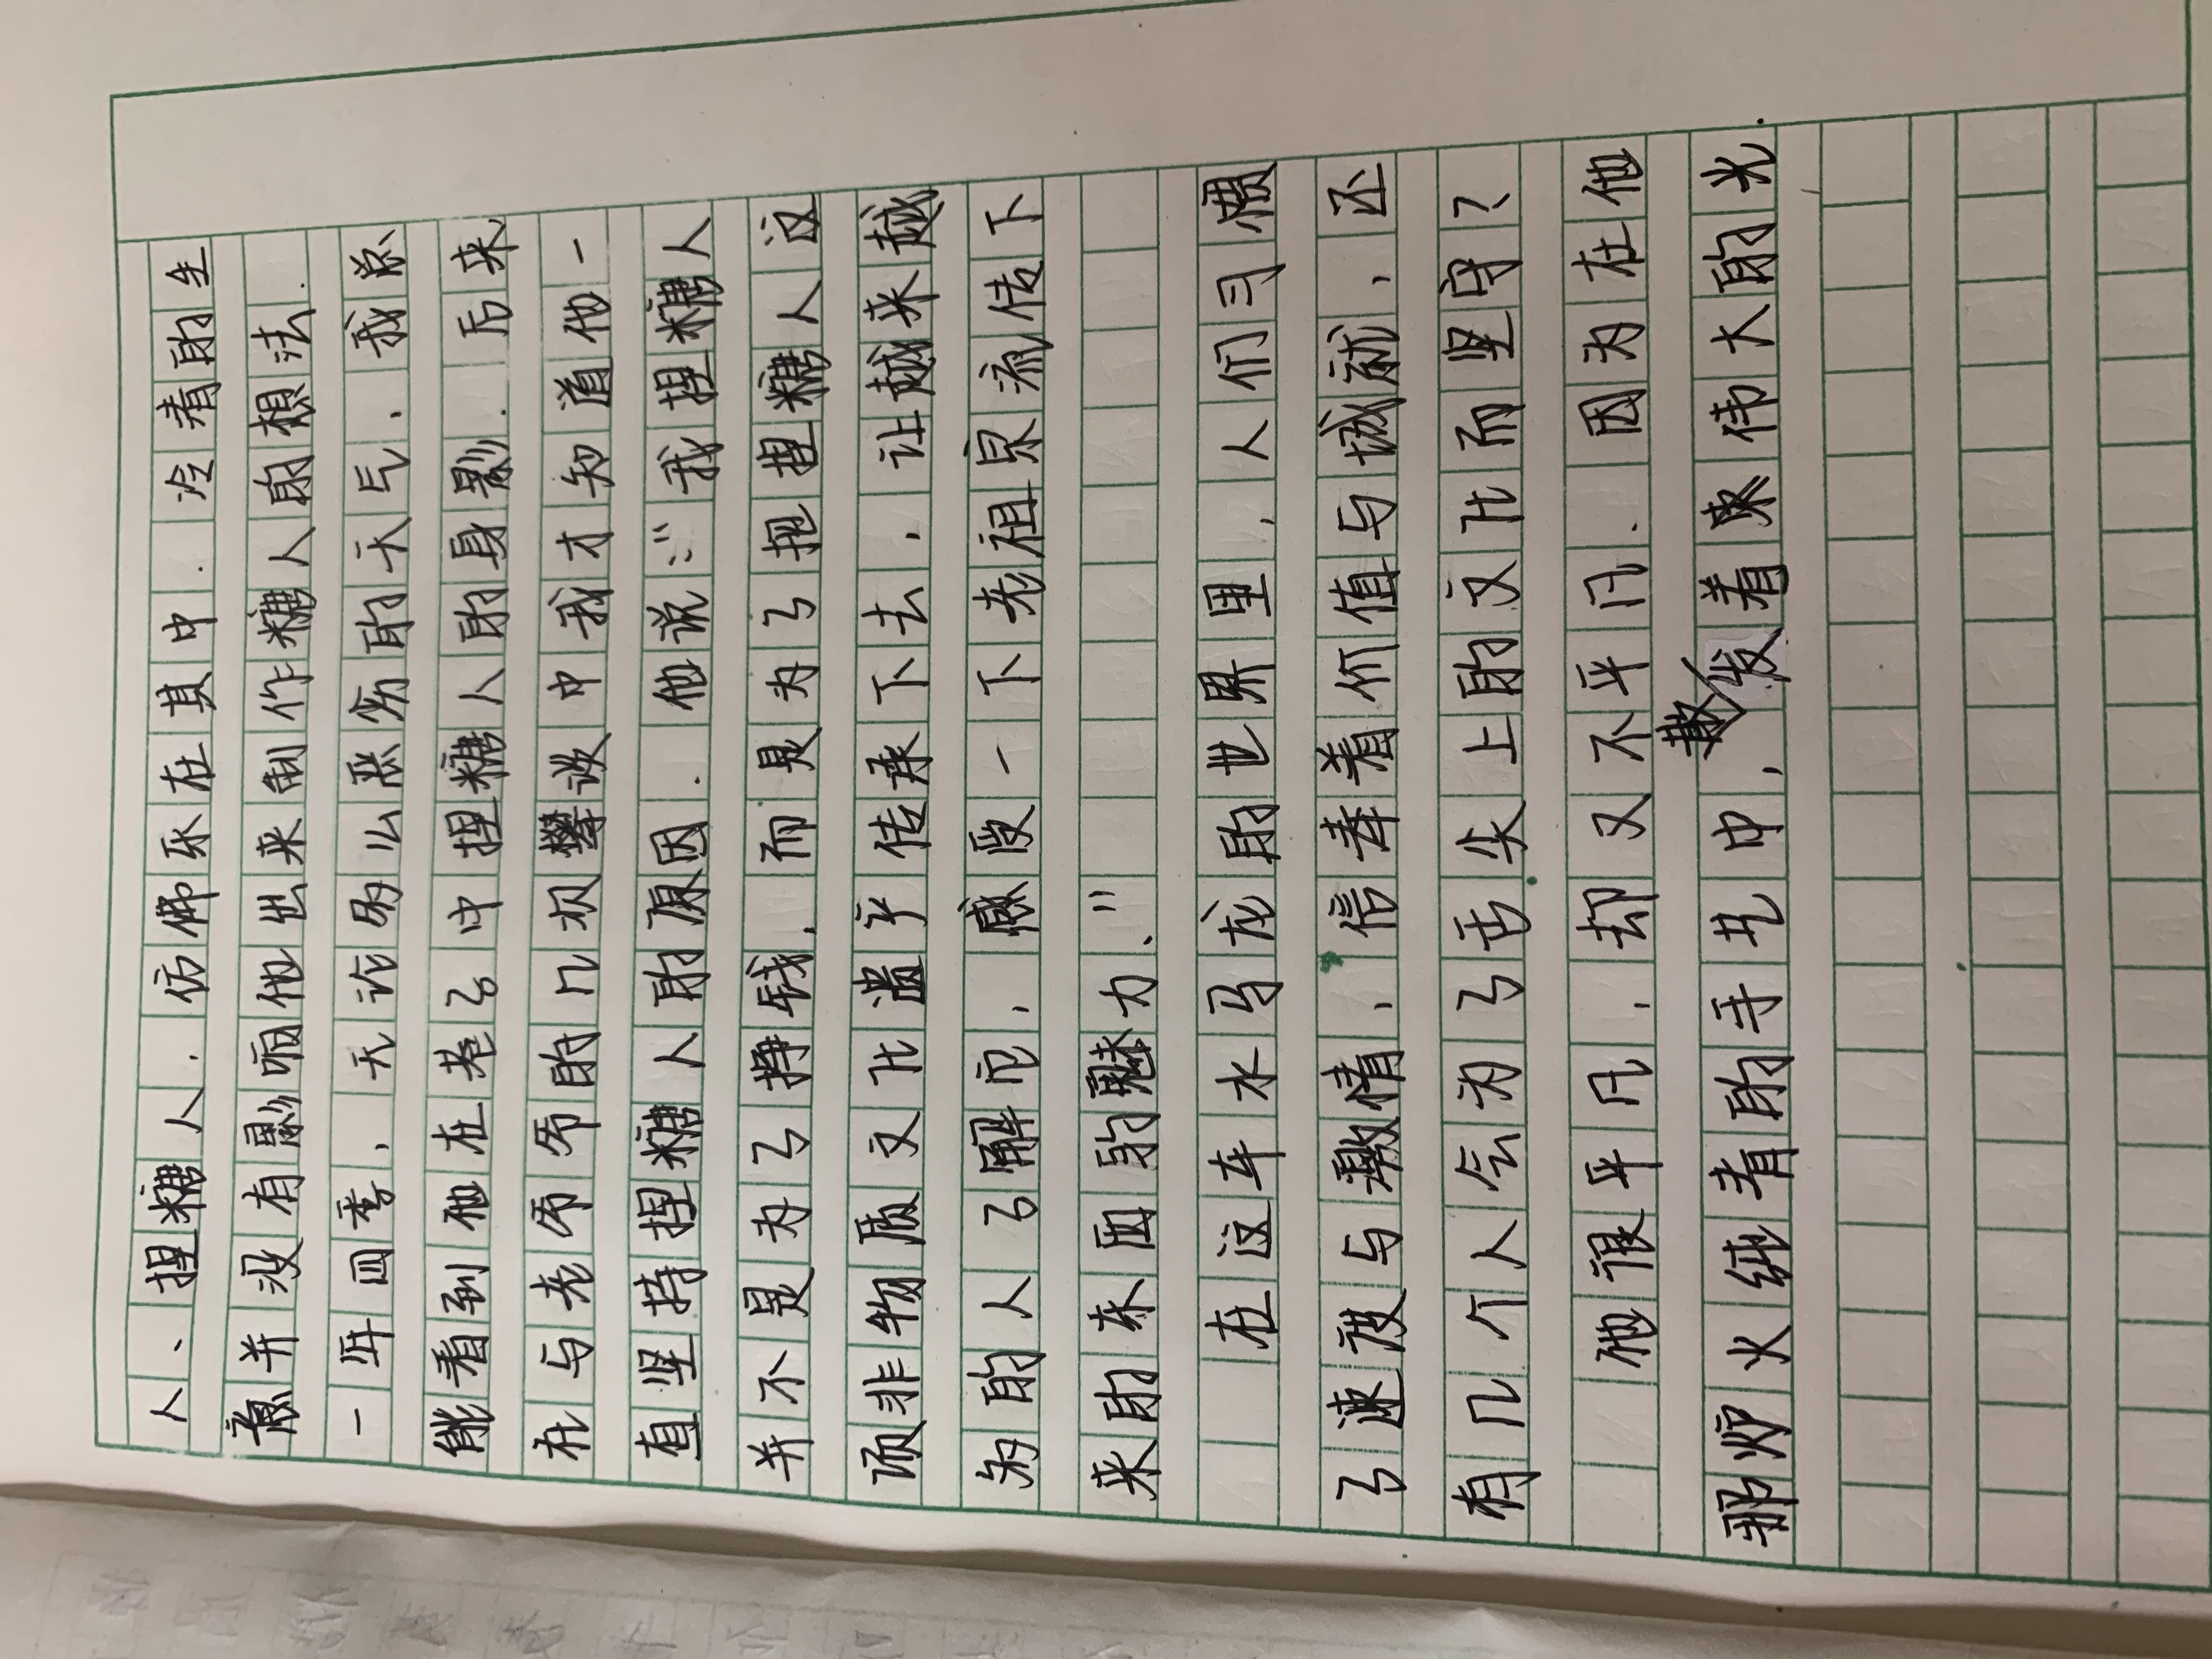 人、捏糖人.仿佛乐在其中.冷清的生
意并没有影响他出来制作糖人的想法.
一年四季,无论多么恶劣的天气,我总
能看到他在巷口中捏糖人的身影.后来
在与老爷爷的几次攀谈中我才知道他一
直坚持捏糖人的原因.他说:“我捏糖人
并不是为了挣钱,而是为了把捏糖人这
项非物质文化遗产传承下去,让越来越
多的人了解它,感受一下老祖宗流传下
来的东西的魅力.”
在这车水马龙的世界里,人们习惯
了速度与激情,信奉着价值与成就,还
有几个人会为了舌尖上的文化而坚守?
他很平凡,却又不平凡.因为在他
那炉火纯青的手艺中,散发着伟大的光